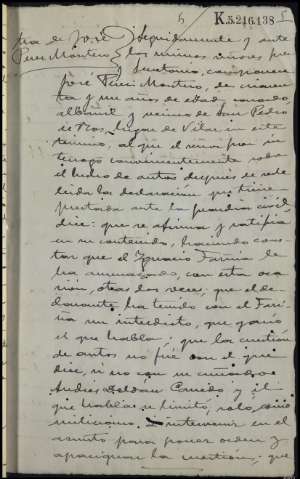 5
K.5.216.138
5
de José Seguidamente y ante
Pérez Montero los mismos señores
y Instrucción, comparece
José Pérez Montero, de cuaren-
ta y un años de edad, casado,
albañil y vecino de San Pedro
de Nos, lugar de Vilar, en este
término, al que el
convenientemente sobre
el hecho de autos después de
leida la declaración que tiene
prestada ante la guardia civil,
dice: que se afirma y ratifica
en su contenido, haciendo cons-
tar que el Ignacio Fariña le
ha amenazado, con esta oca-
sión, otras dos veces, que el de-
clarante ha tenido con el Fari-
ña un interdicto, que ganó
el que habla, que la cuestión
de autos no fue con el que
dice, si no con su cuñado
Andrés Roldán y el
que habla se limitó, solo, como
miliciano intervenir en el
asunto para poner orden y
apaciguar la cuestión; que